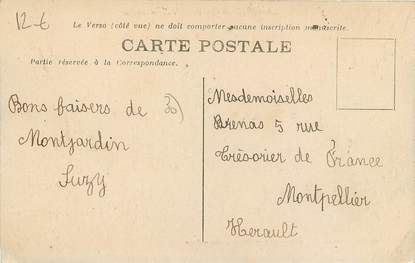 12-€
Le Verso (côté vue) ne doit comporter aucune inscription manuscrite.
CARTE POSTALE
Partie réservée à la Correspondance.
Bons baisers de
Montjardin
Suzy
30
Mesdemoiselles
Brenas 5 rue
Trésorier de France
Montpellier
Herault